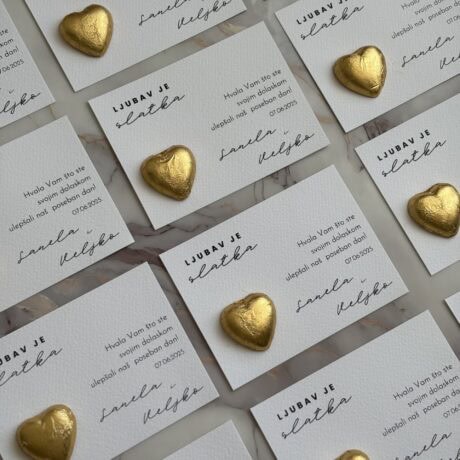 07.06.2025.
Sanela i
Veljko
Sanela i
Veljko
Veljko
LJUBAV JE
slatka
Hvala Vam što ste
svojim dolaskom
ulepšali naš poseban dan!
07.06.2025.
Sanela i
Veljko
LJUBAV JE
slatka
LJUBAV JE
slatka
Hvala Vam što ste
svojim dolaskom
ulepšali naš poseban dan!
07.06.2025.
Sanela i
Veljko
LJUBAV JE
slatka
Hvala Vam što ste
svojim dolaskom
ulepšali naš poseban dan!
07.06.2025.
Sanela i
Veljko
LJUBAV JE
slatka
Hvala Vam što ste
svojim dolaskom
ulepšali naš poseban dan!
07.06.2025.
Sanela i
Veljko
LJUBAV JE
slatka
Hvala Vam što ste
svojim dolaskom
ulepšali naš poseban